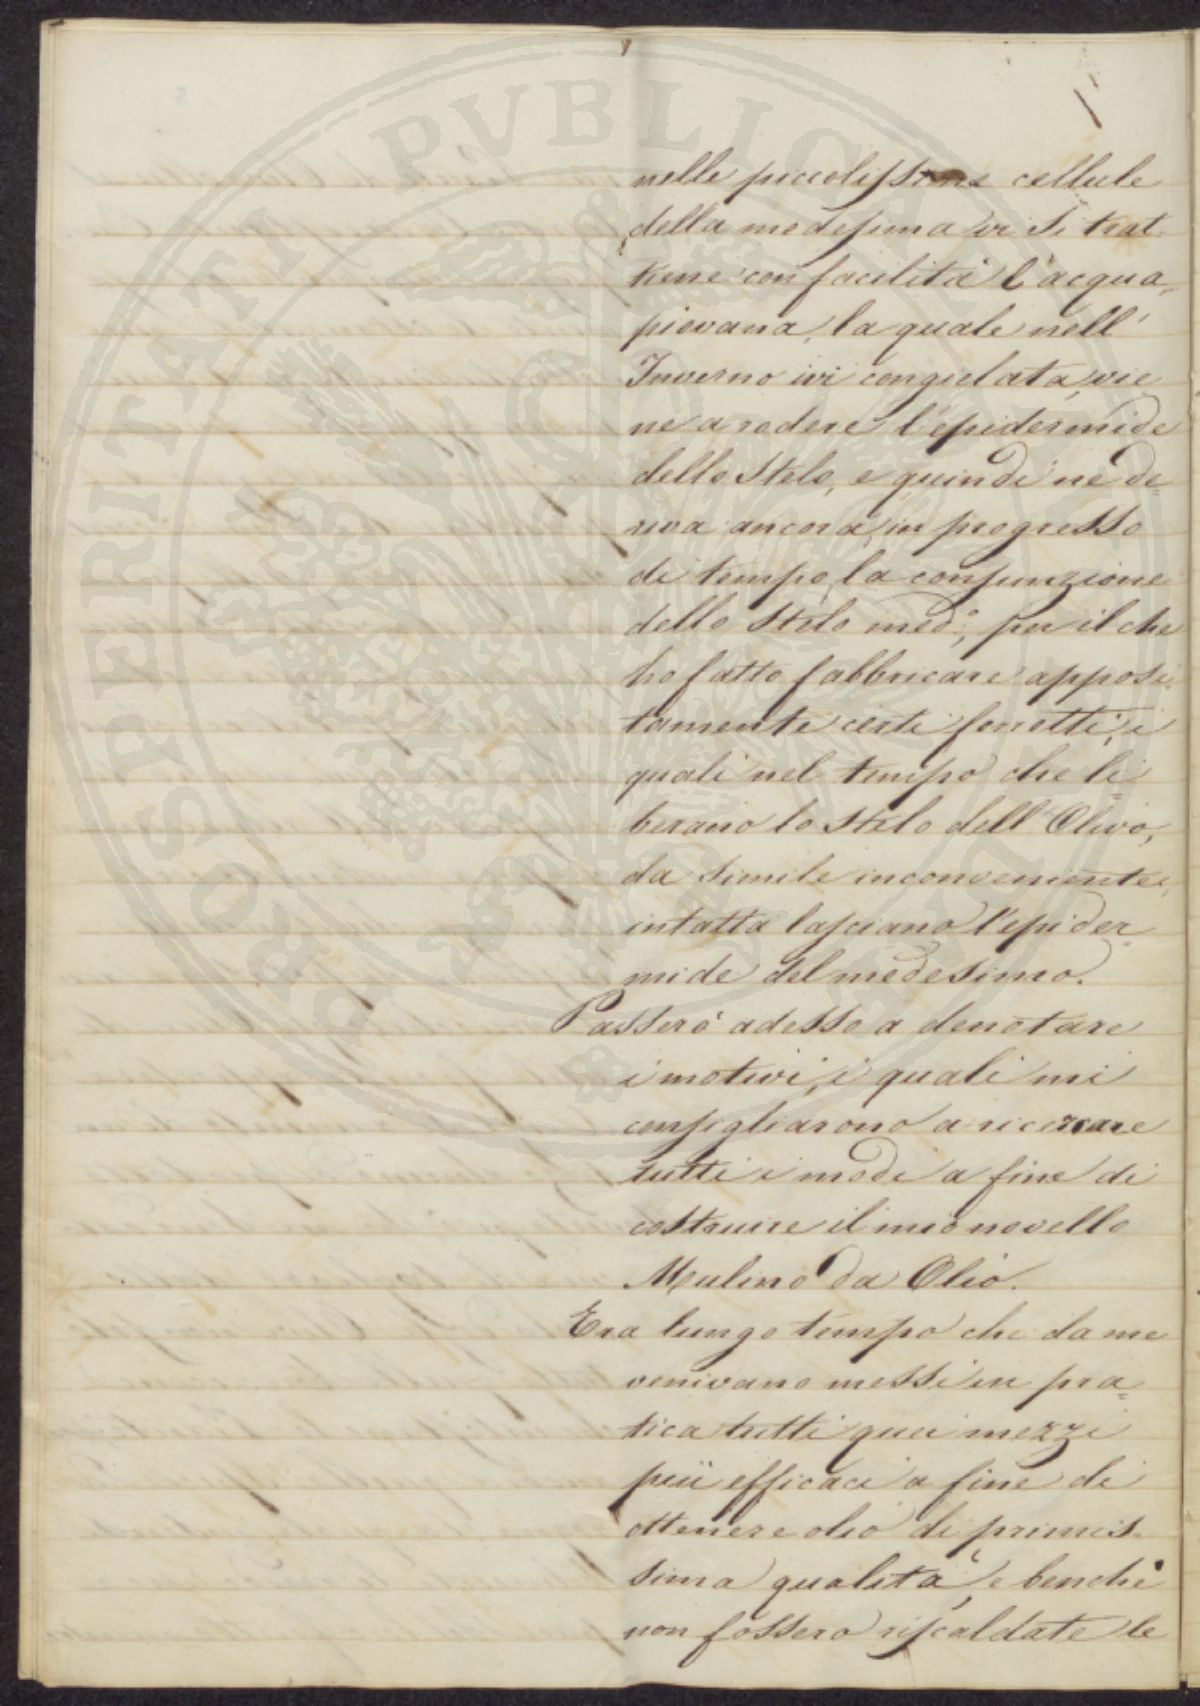 PROSPERITATI PVBLICAE
nelle piccolissime cellule
della medesima vi si trat-
tiene con facilità l'acqua
piovana, la quale nell'
Inverno ivi congielata, vie
ne a rodere l'epidermide
dello Stelo, e quindi ne de-
riva ancora, in progresso
di tempo, la consunzione
dello Stelo med.o, per il che
ho fatto fabbricare apposi-
tamente certi ferretti, i
quali nel tempo che li=
berano lo Stelo dell'Olivo,
da simile inconveniente,
intatta lasciano l'epider=
mide del medesimo.
Passerò adesso a denotare
i motivi, i quali mi
consigliarono a ricercare
tutti i modi a fine di
costruire il mio novello
Mulino da Olio.
Era lungo tempo che da me
venivano messi in pra=
tica tutti quei mezzi
più efficaci a fine di
ottenere olio di primis-
sima qualità, e benchè
non fossero riscaldate le